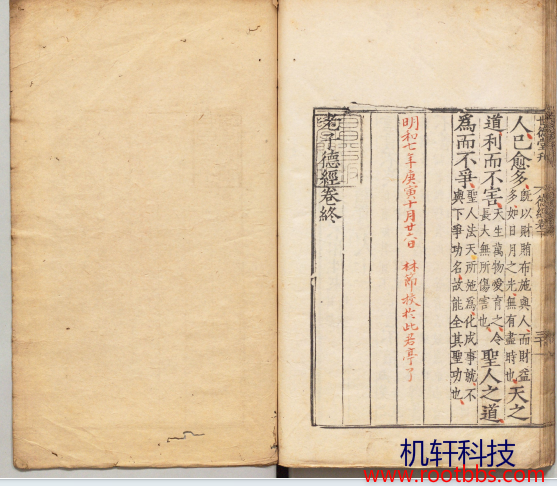 世德堂刊
人己愈多既以財賄布施與人而財益多如日月之光無有盡時也天之
道利而不害天生萬物愛育之令長大無所傷害也聖人之道
爲而不爭聖人法天所施爲化成事就不與下爭功名故能全其聖功也
明和七年庚寅十月廿六日 林節挍於此君亭了
老子德經卷終
机轩科技
www.rootbbs.com